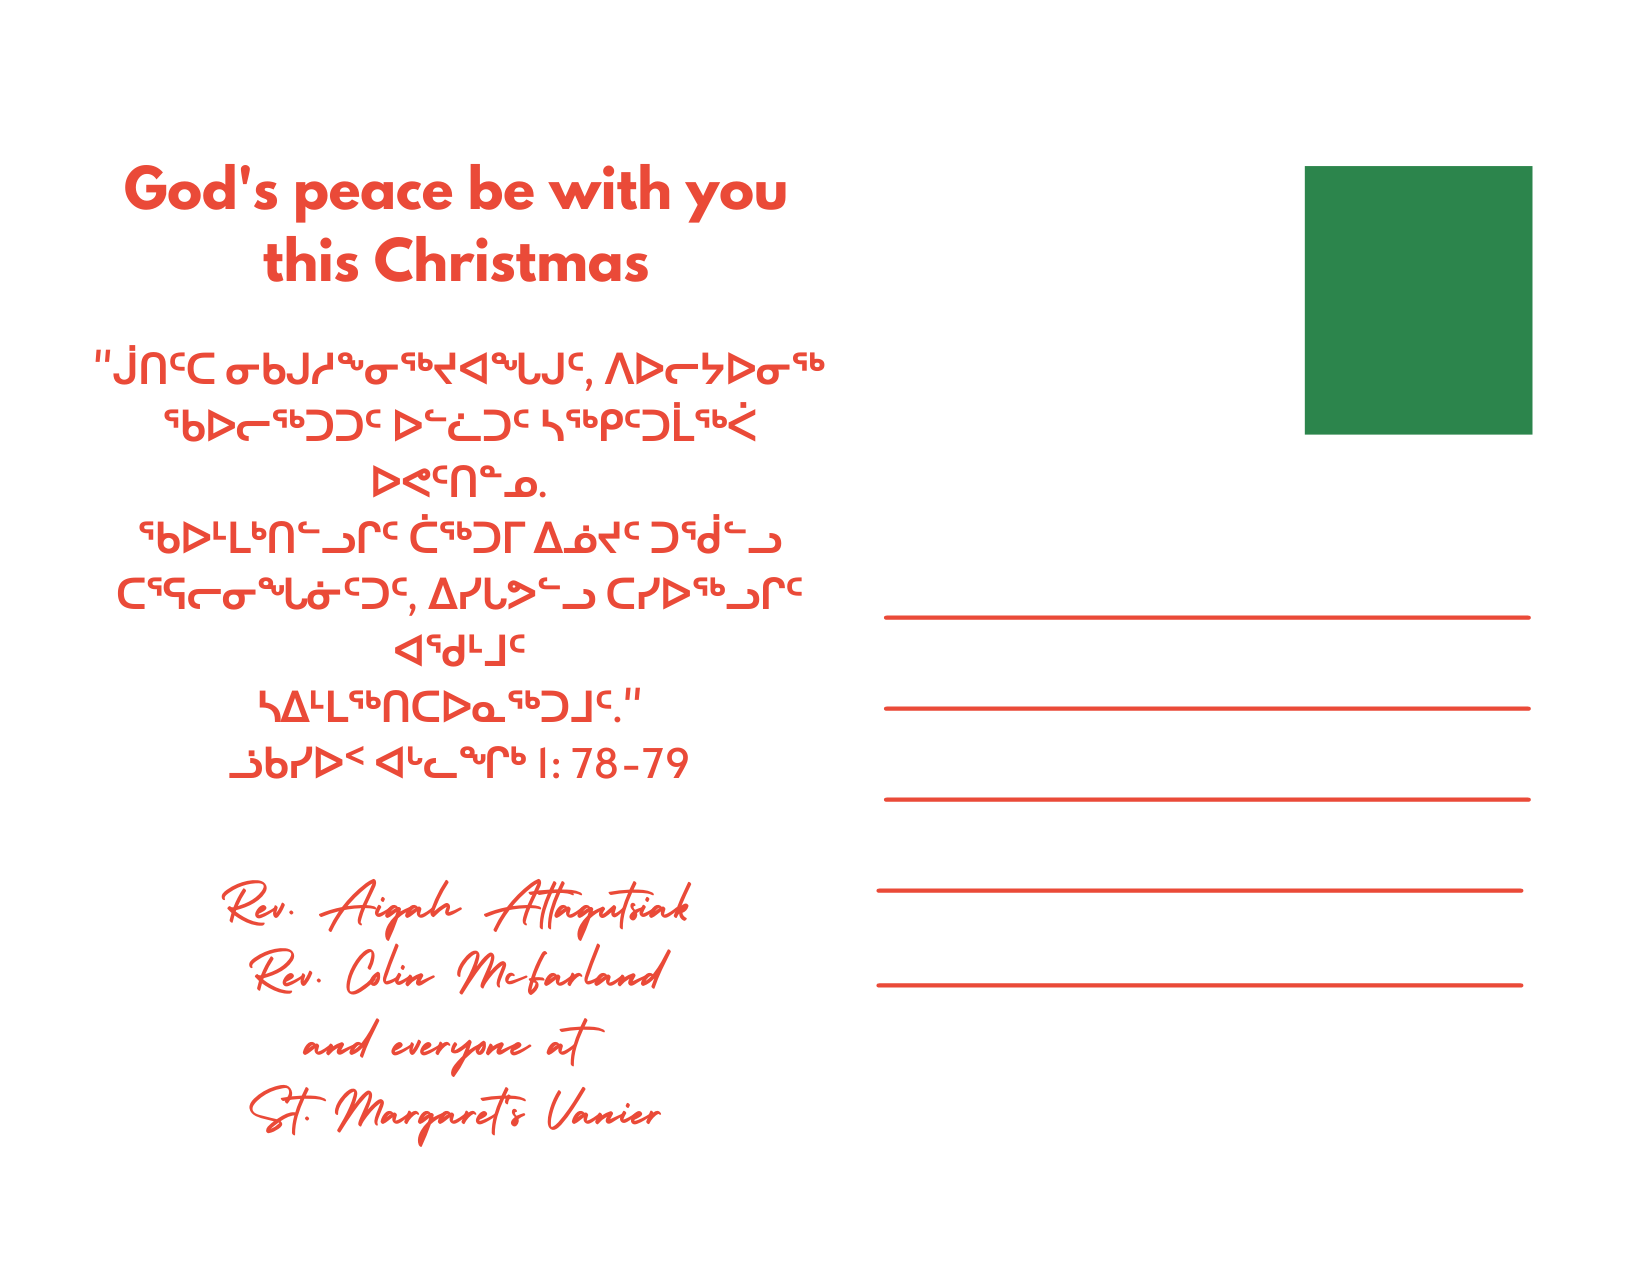 God's peace be with you
this Christmas
"ᒎᑎᑦᑕ ᓂᑲᒍᓱᖕᓂᖅᔪᐊᖓᒍᑦ, ᐱᐅᓕᔭᐅᓂᖅ
ᖃᐅᓕᖅᑐᑐᑦ ᐅᓪᓛᑐᑦ ᓴᖅᑭᑦᑐᒫᖅᐹ
ᐅᕙᑦᑎᓐᓄ.
ᖃᐅᒻᒪᒃᑎᓪᓗᒋᑦ ᑖᖅᑐᒥ ᐃᓅᔪᑦ ᑐᖂᓪᓗ
ᑕᕋᓕᓂᖓᓃᑦᑐᑦ, ᐃᓯᒐᕗᓪᓗ ᑕᓯᐅᖅᓗᒋᑦ
ᐊᖁᒻᒧᑦ
ᓴᐃᒻᒪᖅᑎᑕᐅᓇᖅᑐᒧᑦ."
ᓘᑲᓯᐅᑉ ᐊᒡᓚᖏᒃ 1: 78-79
Rev. Aigah Attagutsiak
Rev. Colin McFarland
and everyone at
St. Margaret's Vanier